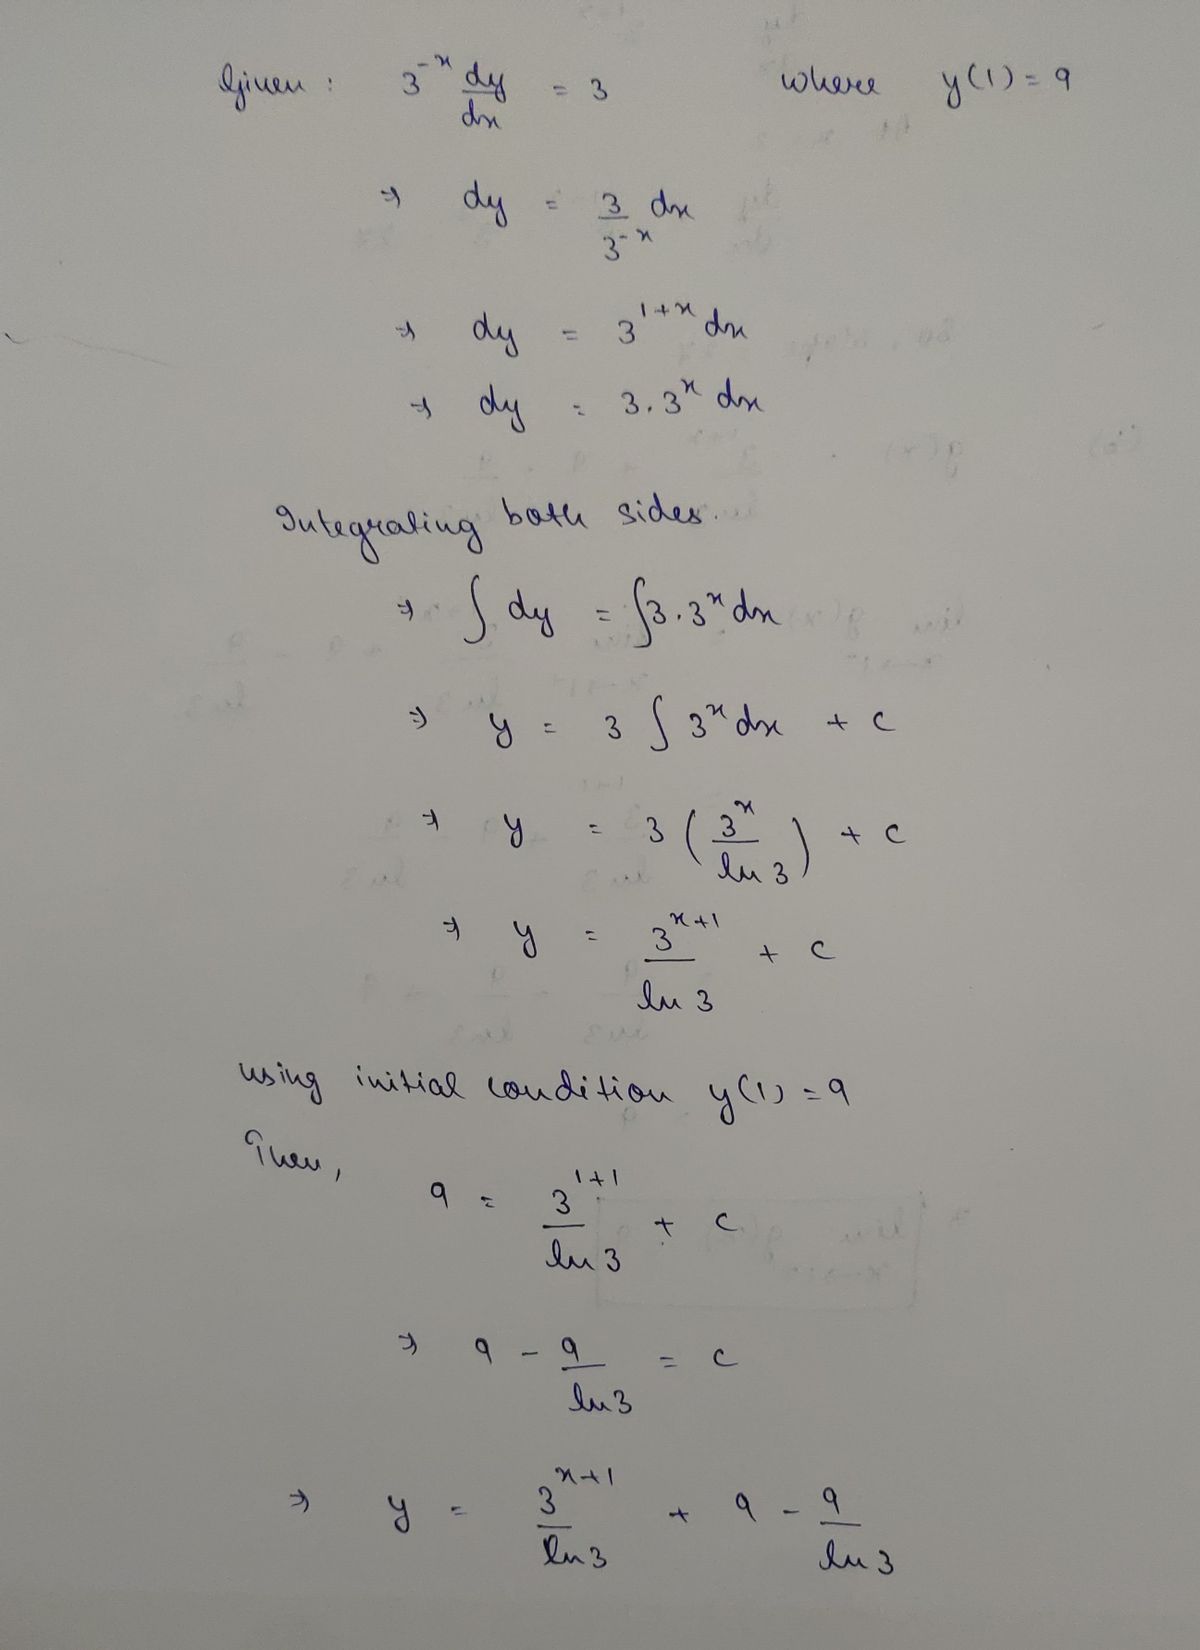 Given : 3^{-x} dy/dx = 3 where y(1) = 9
⇒ dy = 3/3^{-x} dx
⇒ dy = 3^{1+x} dx
⇒ dy = 3.3^x dx
Integrating both sides.
⇒ ∫ dy = ∫3.3^x dx
⇒ y = 3 ∫ 3^x dx + c
⇒ y = 3 (3^x/ln 3) + c
⇒ y = 3^{x+1}/ln 3 + c
using initial condition y(1) = 9
Then,
9 = 3^{1+1}/ln 3 + c
⇒ 9 - 9/ln 3 = c
⇒ y = 3^{x+1}/ln 3 + 9 - 9/ln 3